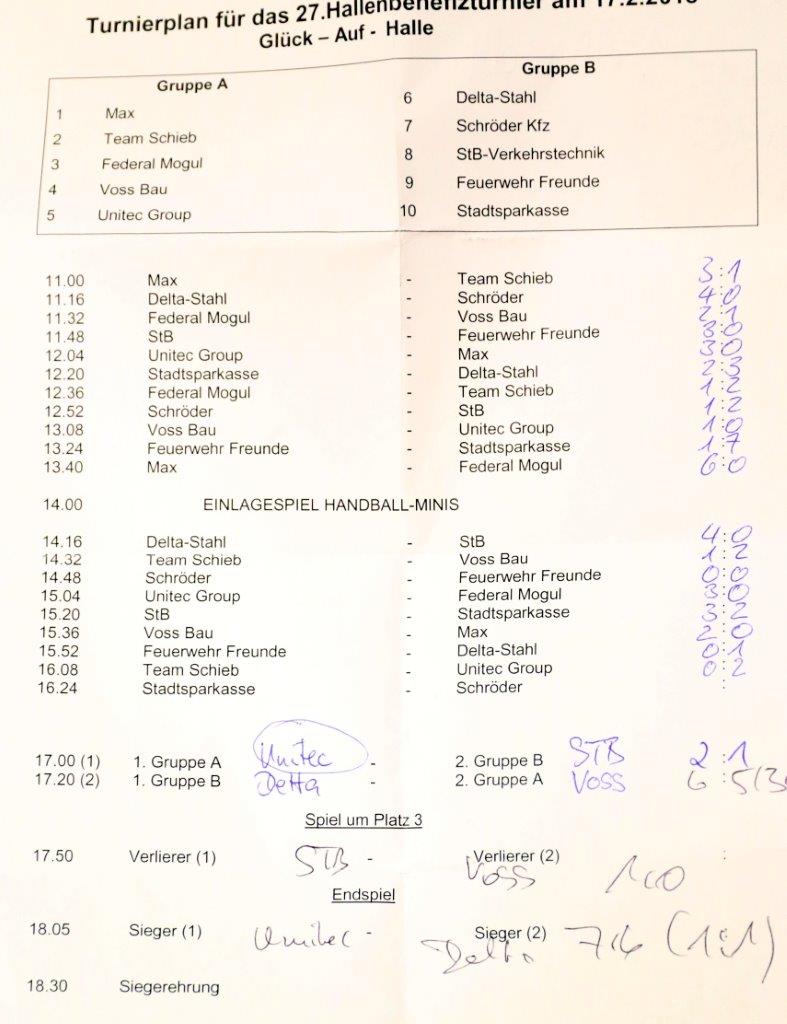 Turnierplan für das 27.Hallenbenefizturnier am 17.2.2018
Glück – Auf - Halle
Gruppe A Gruppe B
1 Max 6 Delta-Stahl
2 Team Schieb 7 Schröder Kfz
3 Federal Mogul 8 StB-Verkehrstechnik
4 Voss Bau 9 Feuerwehr Freunde
5 Unitec Group 10 Stadtsparkasse
11.00 Max - Team Schieb 3:1
11.16 Delta-Stahl - Schröder 4:0
11.32 Federal Mogul - Voss Bau 2:1
11.48 StB - Feuerwehr Freunde 3:0
12.04 Unitec Group - Max 3:0
12.20 Stadtsparkasse - Delta-Stahl 2:3
12.36 Federal Mogul - Team Schieb 1:2
12.52 Schröder - StB 1:2
13.08 Voss Bau - Unitec Group 1:0
13.24 Feuerwehr Freunde - Stadtsparkasse 1:7
13.40 Max - Federal Mogul 6:0
14.00 EINLAGESPIEL HANDBALL-MINIS
14.16 Delta-Stahl - StB 4:0
14.32 Team Schieb - Voss Bau 1:2
14.48 Schröder - Feuerwehr Freunde 0:0
15.04 Unitec Group - Federal Mogul 3:0
15.20 StB - Stadtsparkasse 3:2
15.36 Voss Bau - Max 2:0
15.52 Feuerwehr Freunde - Delta-Stahl 0:1
16.08 Team Schieb - Unitec Group 0:2
16.24 Stadtsparkasse - Schröder :
17.00 (1) 1. Gruppe A Unitec - 2. Gruppe B STB 2:1
17.20 (2) 1. Gruppe B Delta - 2. Gruppe A VOSS 6:5
Spiel um Platz 3
17.50 Verlierer (1) STB - Verlierer (2) Voss : 1:0
Endspiel
18.05 Sieger (1) Unitec - Sieger (2) Delta 7:6 (1:1)
18.30 Siegerehrung